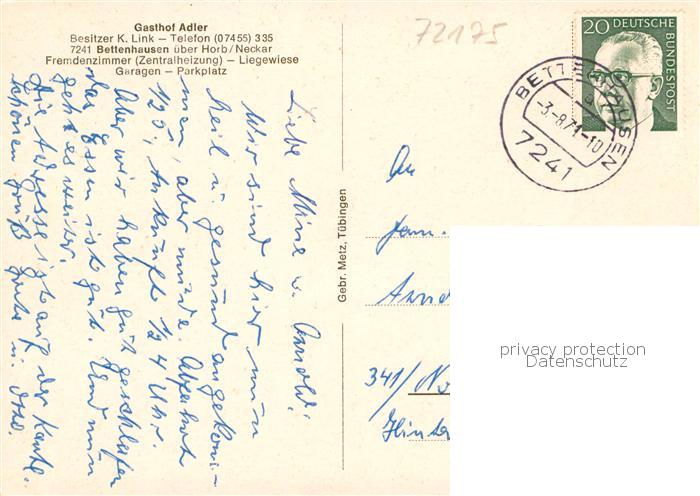 Gasthof Adler
Besitzer K. Link – Telefon (07455) 335
7241 Bettenhausen über Horb/Neckar
Fremdenzimmer (Zentralheizung) – Liegewiese
Garagen – Parkplatz
72175
20 DEUTSCHE
BUNDESPOST
BETTENHAUSEN
a
-3.-8.71-10
7241
Liebe Mine u. Arnold!
Wir sind hier nun
heil u. gesund angekom-
men, aber müde. Abfahrt
Ankunft 1/2 4 Uhr.
Aber wir haben gut geschlafen
das Essen ist gut. Und nun
geht es weiter.
Die Adresse ist auf der Karte.
schönen Gruß
Gebr. Metz, Tübingen
An
Fam.
341/No
Hinter
privacy protection
Datenschutz